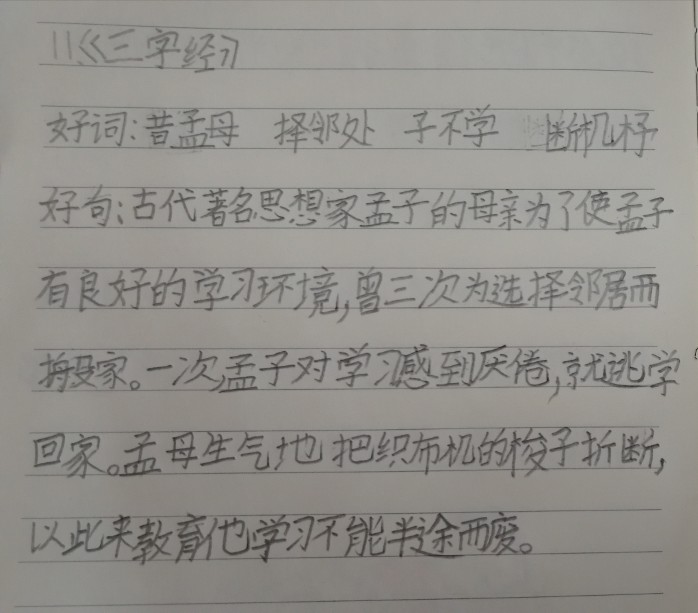 11《三字经》
好词:昔孟母 择邻处 子不学 断机杼
好句:古代著名思想家孟子的母亲为了使孟子
有良好的学习环境,曾三次为选择邻居而
搬家。一次,孟子对学习感到厌倦,就逃学
回家。孟母生气地把织布机的梭子折断,
以此来教育他学习不能半途而废。